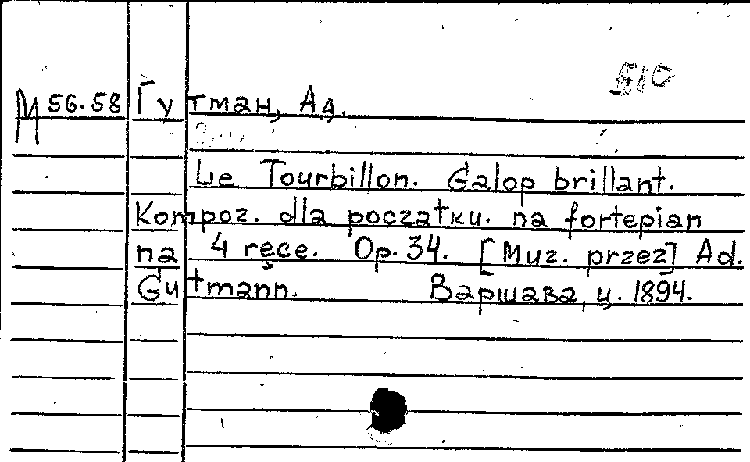 М 56.58 Гутман, Ад.
Le Tourbillon. Galop brillant.
Kompoz. dla początku. na fortepian
na 4 ręce. Op. 34. [Muz. przez] Ad.
Gutmann. Варшава, ц. 1894.